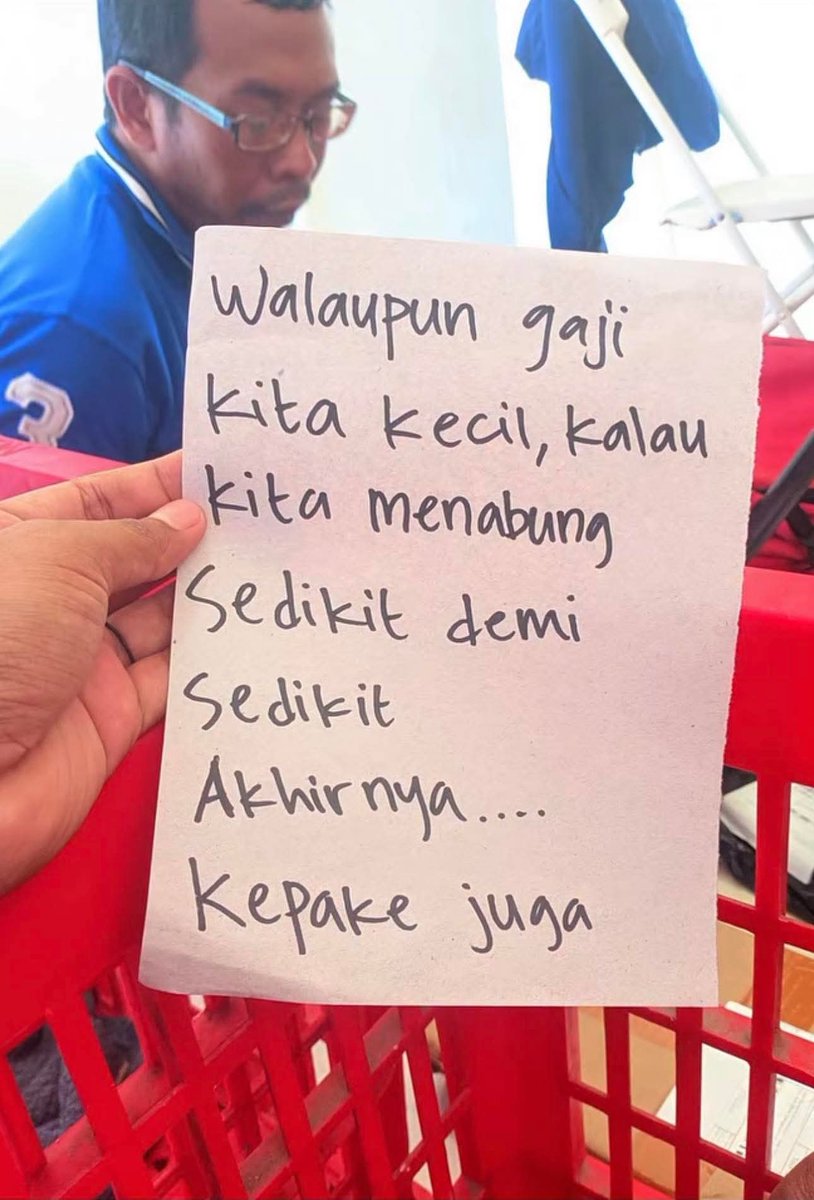 Walaupun gaji
kita kecil, kalau
kita menabung
Sedikit demi
Sedikit
Akhirnya....
Kepake juga
3